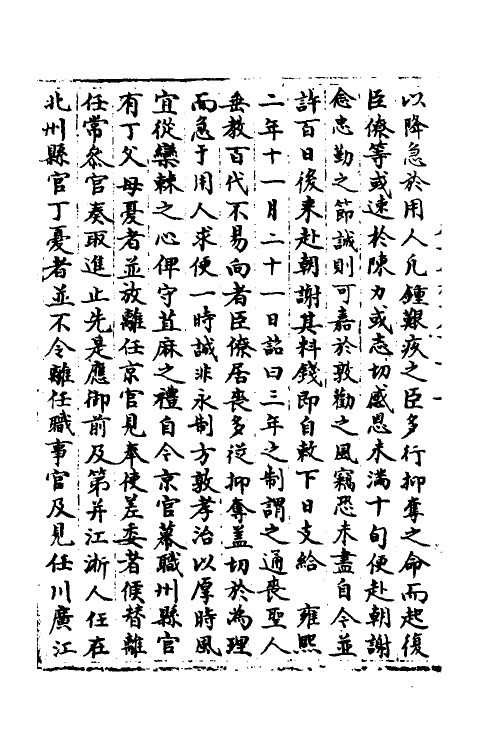 以降急於用人凡鍾艱疚之臣多行抑奪之命而起復
臣僚等或速於陳力或志切感恩未滿十旬便赴朝謝
念忠勤之節誠則可嘉於敦勸之風竊恐未盡自今並
許百日後来赴朝謝其料錢即自敕下日支給　雍熙
二年十一月二十一日詔曰三年之制謂之通喪聖人
垂教百代不易向者臣僚居喪多從抑奪盖切於為理
而急于用人求便一時誠非永制方敦孝治以厚時風
宜從欒棘之心俾守苴麻之禮自今京官幕職州縣官
有丁父母憂者並放離任京官見奉使差委者候替離
任常叅官奏取進止先是應御前及第并江浙人任在
北州縣官丁憂者並不令離任職事官及見任川廣江